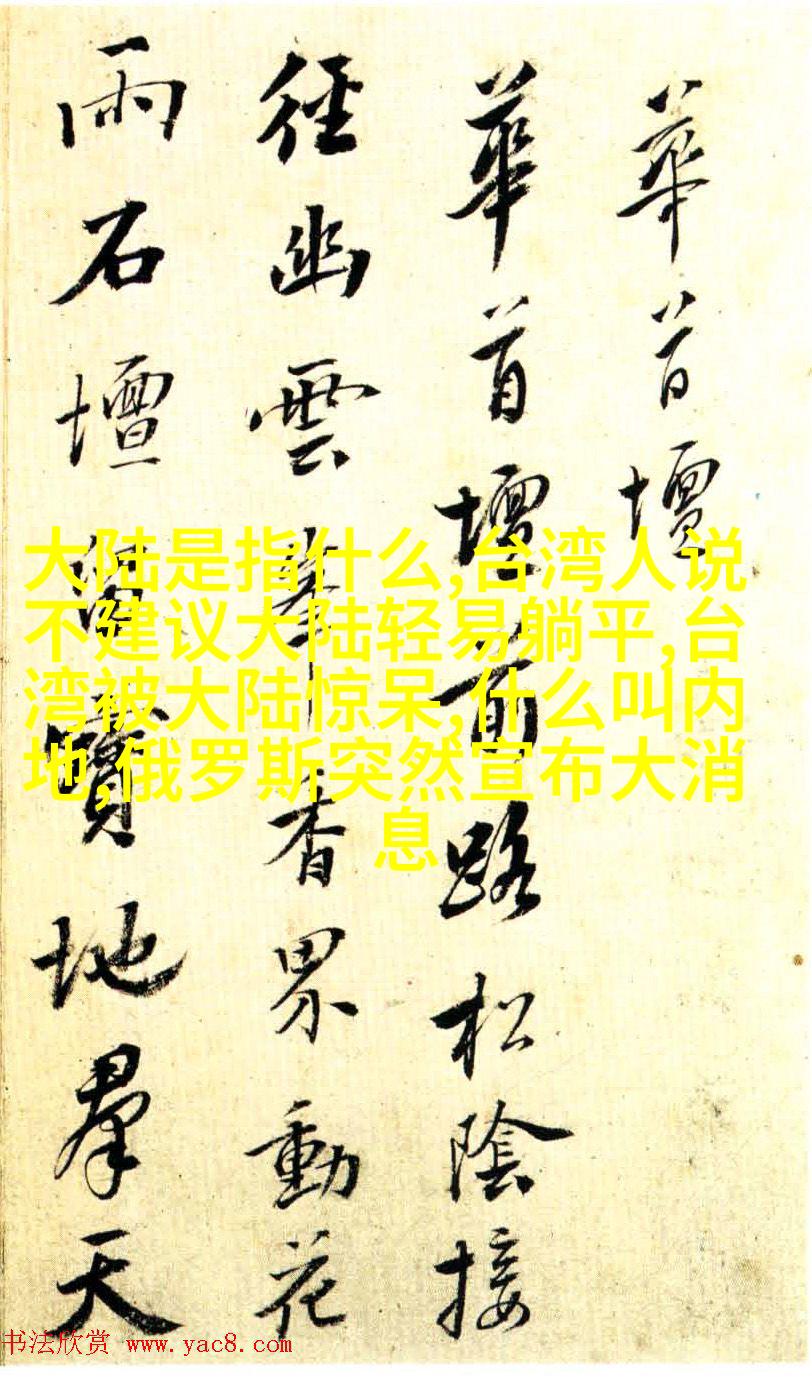 華首壇
華首壇前路松陰接
徑幽雲峯香界動花
雨石壇留寶地羣天
大陆是指什么,台湾人说
不建议大陆轻易躺平,台
湾被大陆惊呆,什么叫内
地,俄罗斯突然宣布大消
息
书法欣赏 www.yac8.com